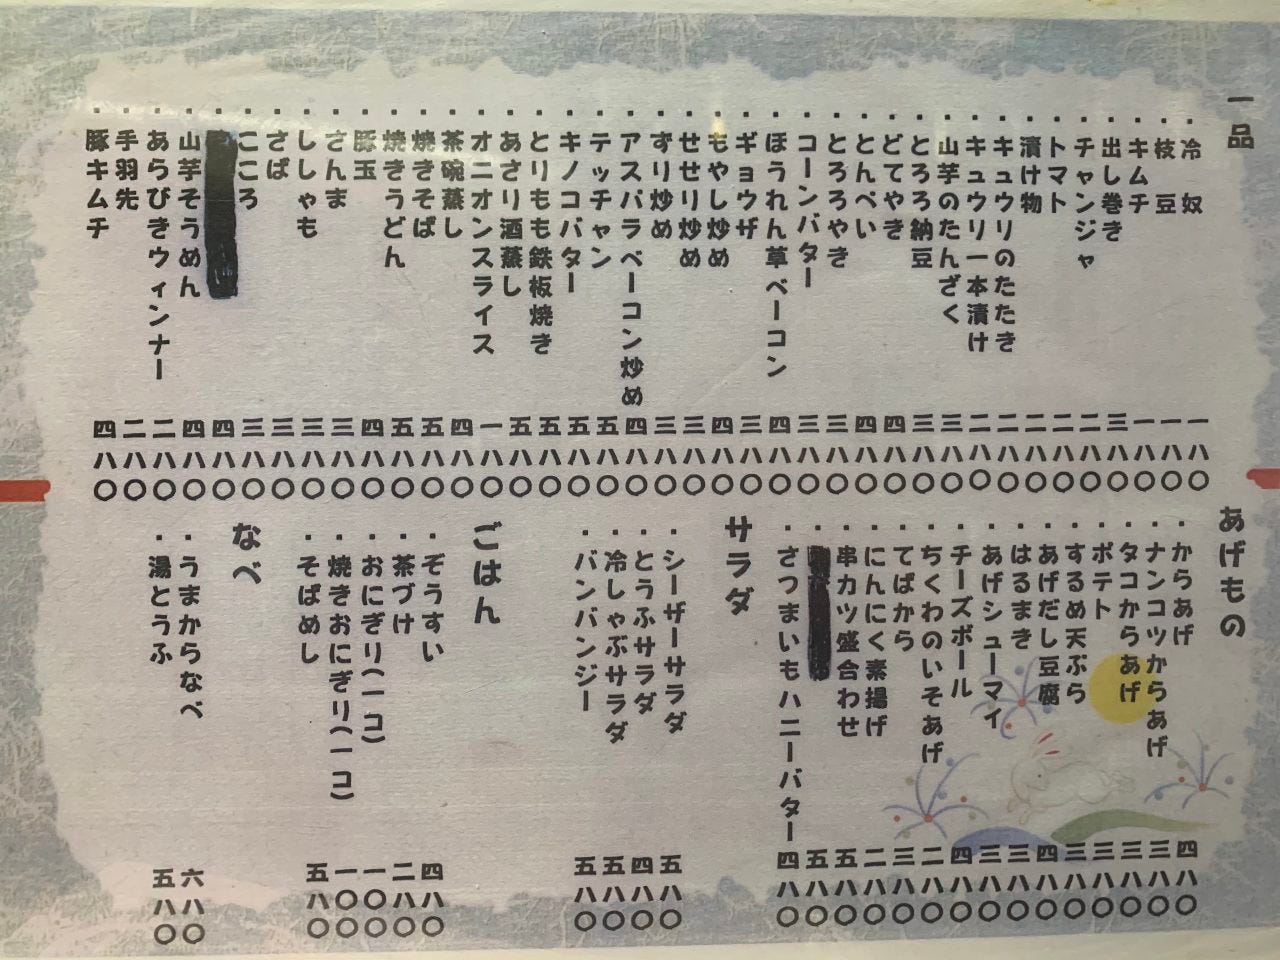 一品
・冷奴 一八〇
・枝豆 一八〇
・キムチ 一八〇
・出し巻き 三八〇
・チャンジャ 二八〇
・トマト 二八〇
・漬け物 二八〇
・キュウリのたたき 二八〇
・キュウリ一本漬け 二八〇
・山芋のたんざく 三八〇
・とろろ納豆 三八〇
・どてやき 四八〇
・とんぺい 四八〇
・とろろやき 三八〇
・コーンバター 三八〇
・ほうれん草ベーコン 四八〇
・ギョウザ 三八〇
・もやし炒め 四八〇
・せせり炒め 三八〇
・ずり炒め 三八〇
・アスパラベーコン炒め 四八〇
・テッチャン 五八〇
・キノコバター 五八〇
・とりもも鉄板焼き 五八〇
・あさり酒蒸し 五八〇
・オニオンスライス 一八〇
・茶碗蒸し 四八〇
・焼きそば 五八〇
・焼きうどん 五八〇
・豚玉 四八〇
・さんま 三八〇
・ししゃも 三八〇
・さば 三八〇
・こころ 三八〇
・ 四八〇
・山芋そうめん 四八〇
・あらびきウィンナー 二八〇
・手羽先 二八〇
・豚キムチ 四八〇
あげもの
・からあげ 四八〇
・ナンコツからあげ 三八〇
・タコからあげ 三八〇
・ポテト 三八〇
・するめ天ぷら 三八〇
・あげだし豆腐 四八〇
・はるまき 三八〇
・あげシューマイ 三八〇
・チーズボール 四八〇
・ちくわのいそあげ 二八〇
・てばから 三八〇
・にんにく素揚げ 二八〇
・串カツ盛合わせ 五八〇
・ 五八〇
・さつまいもハニーバター 四八〇
サラダ
・シーザーサラダ 五八〇
・とうふサラダ 四八〇
・冷しゃぶサラダ 五八〇
・バンバンジー 五八〇
ごはん
・ぞうすい 四八〇
・茶づけ 二八〇
・おにぎり(一コ) 一〇〇
・焼きおにぎり(一コ) 一〇〇
・そばめし 五八〇
なべ
・うまからなべ 六八〇
・湯とうふ 五八〇